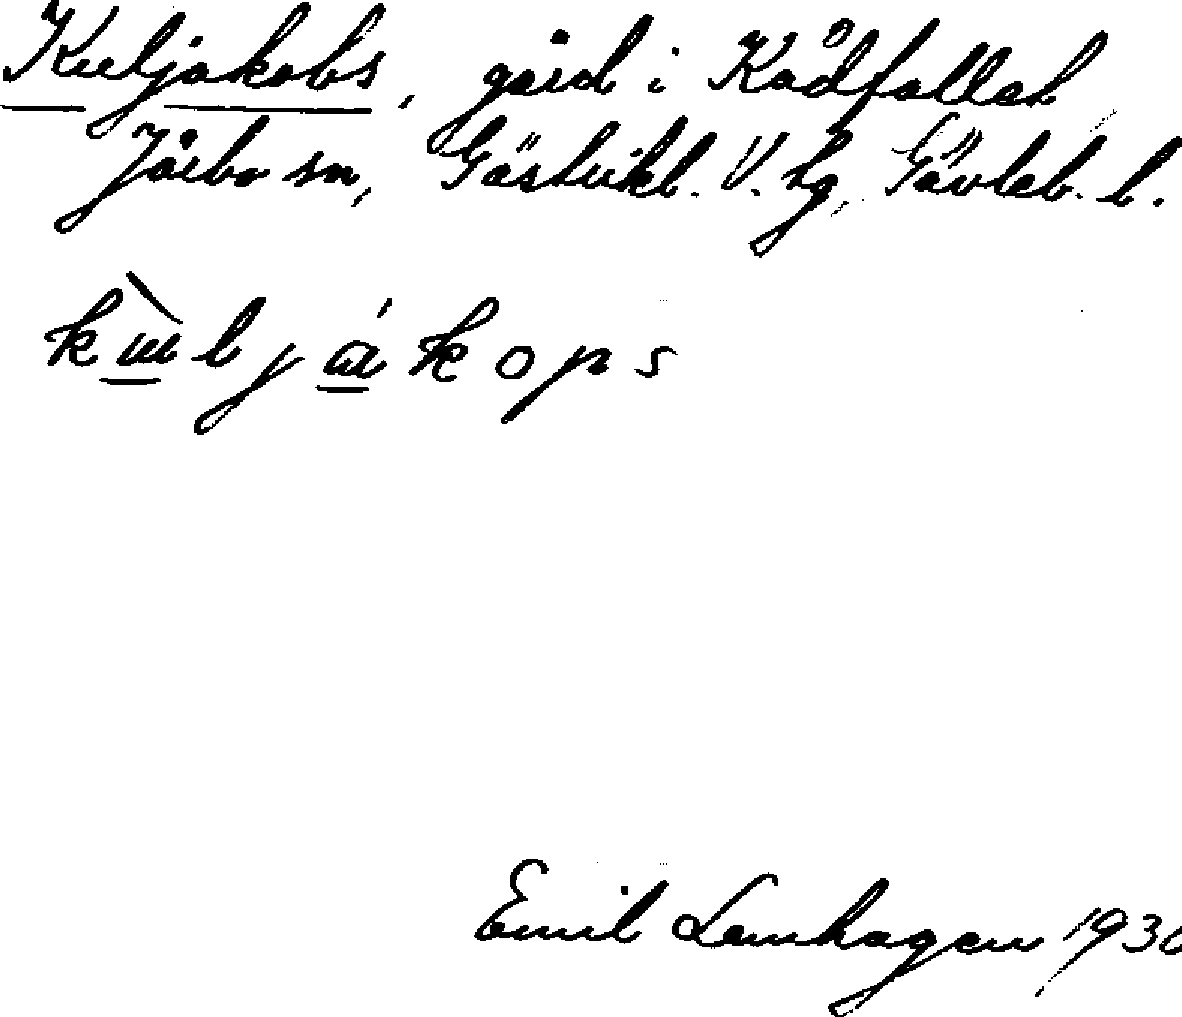 Kuljakobs, gård i Kådfallet
Järbo sn, Gästrikl. V. hg, Gävleb. l.
kùljákops
Emil Lenhagen 1930